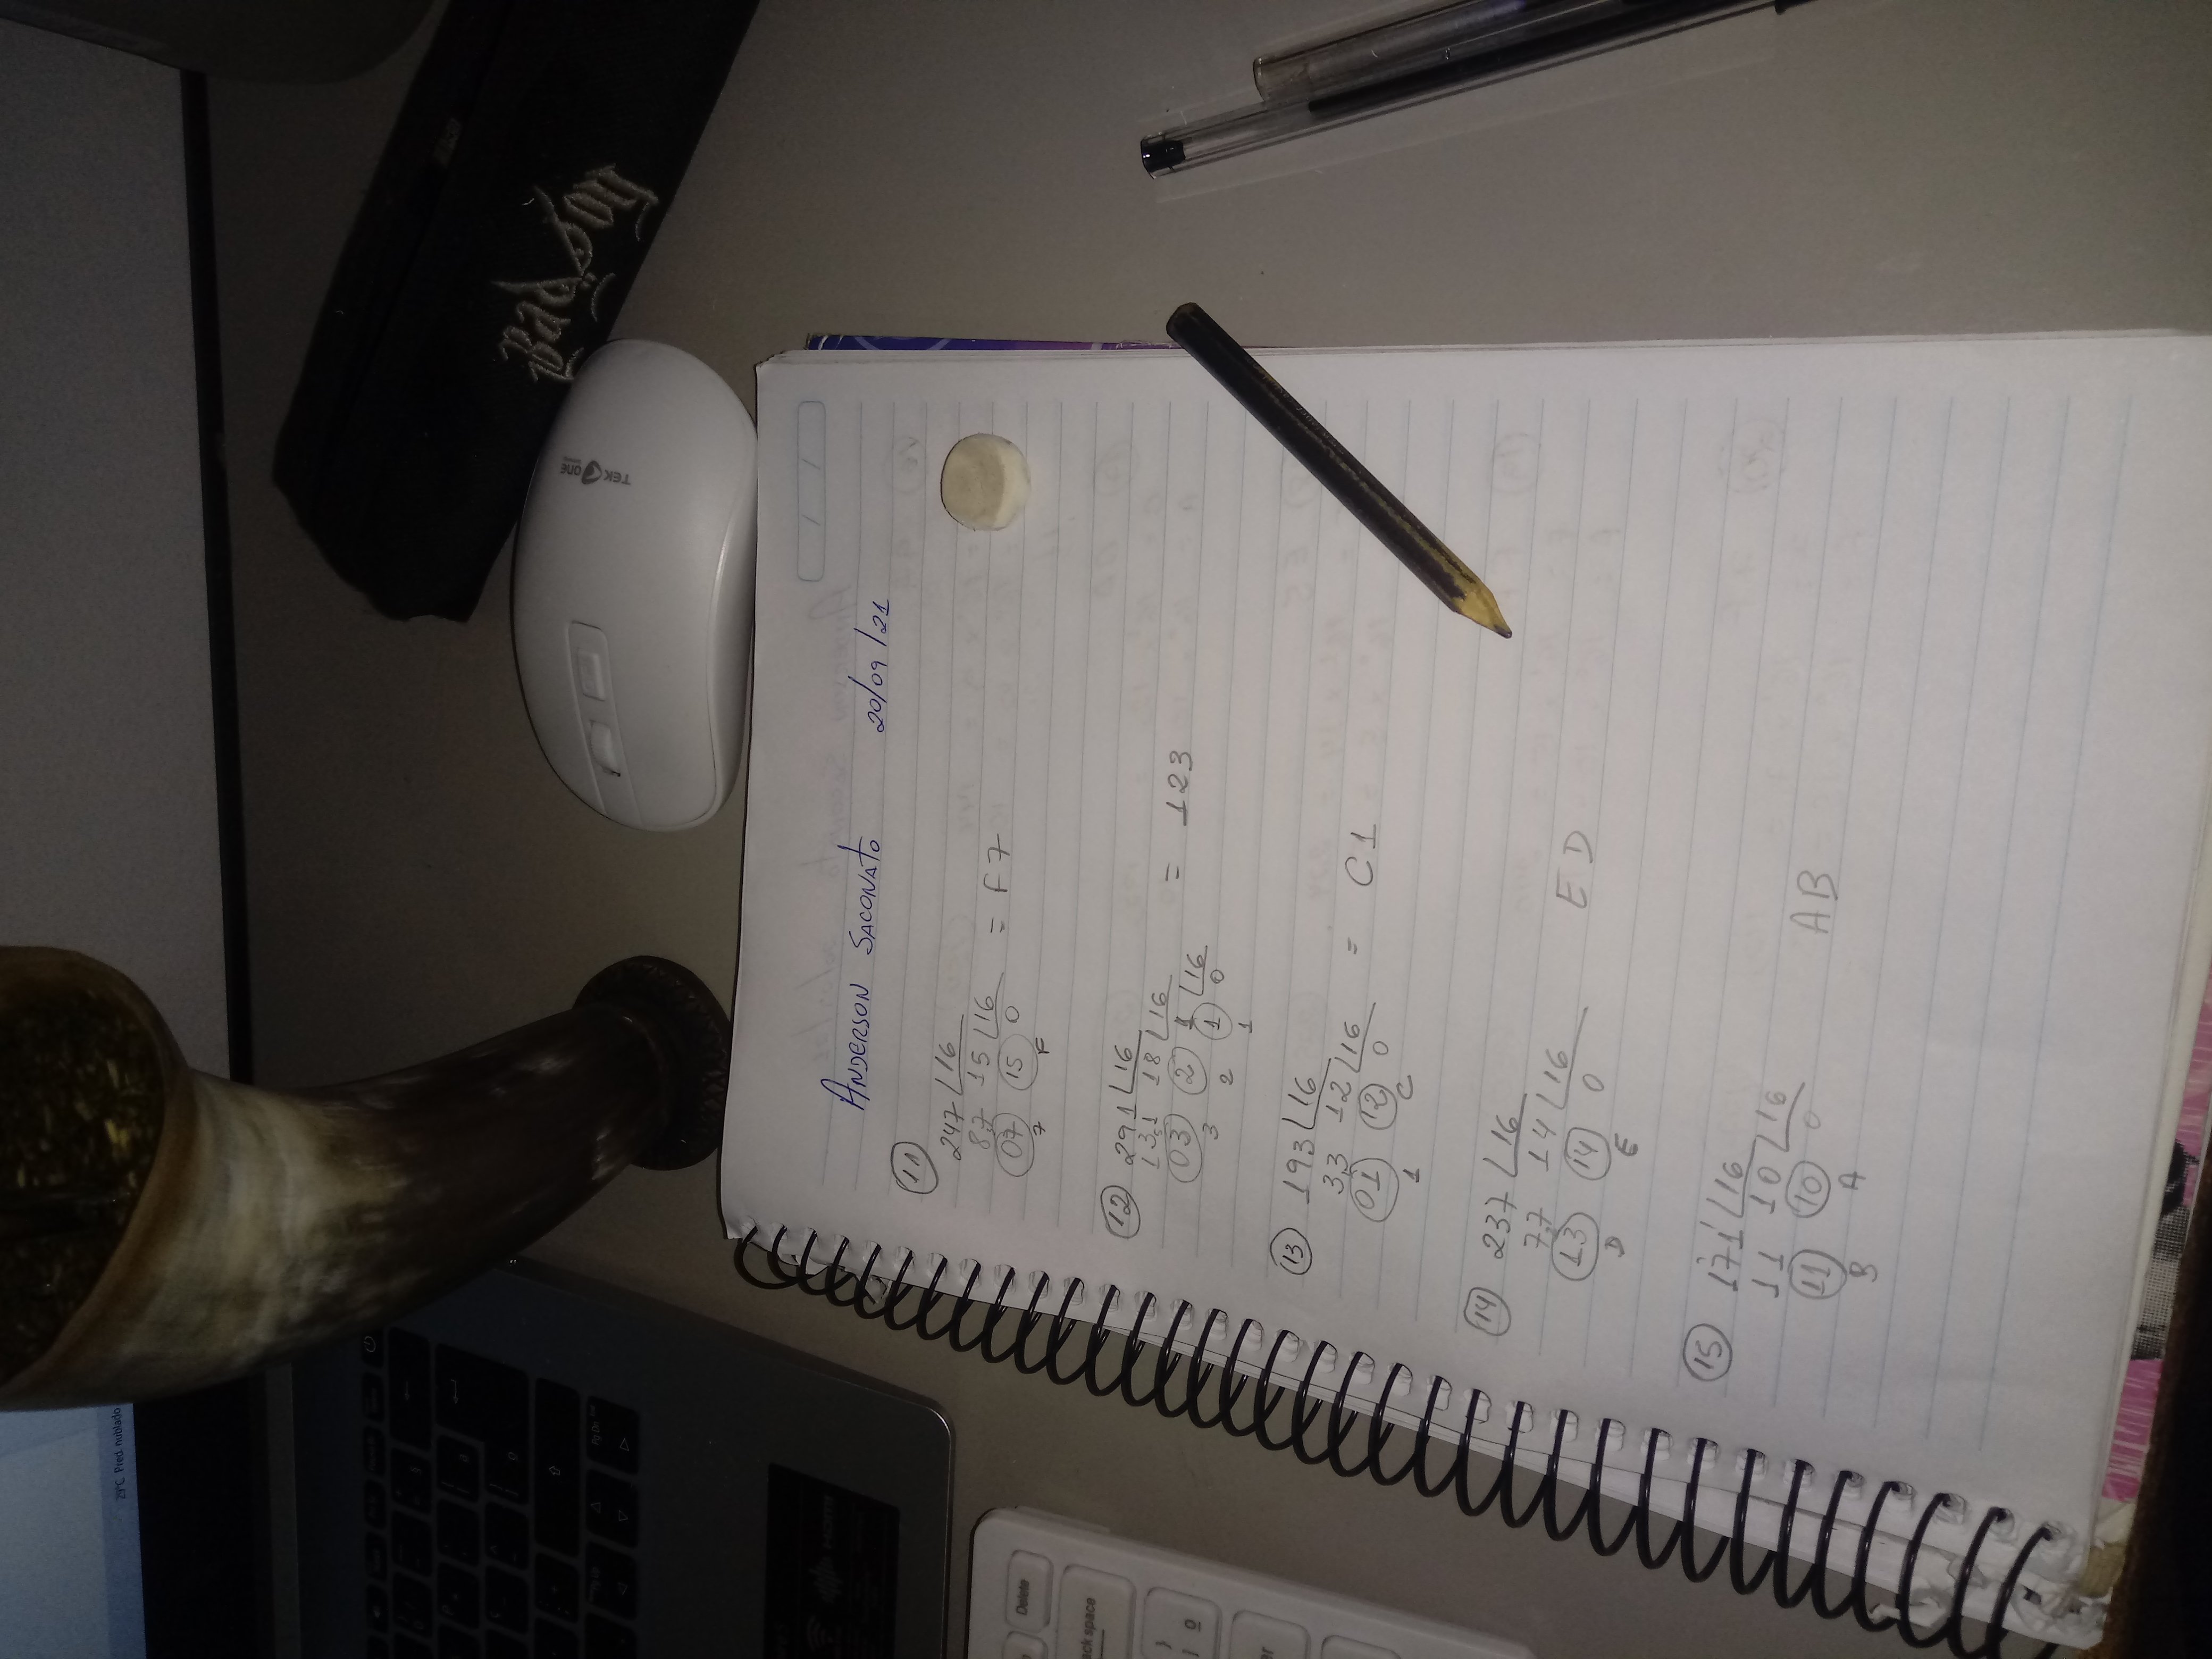 29°C Pred. nublado
Delete
ack space
TEK ONE
Bad Boy
PgDn
Anderson Saconato 20/09/21
11
247 16
87 15 16
07 15 0 = F7
7 F
12 291 16
131 18 16
03 2 1 16 = 123
3 2 1 0
1
13 193 16
33 12 16
01 12 0 = C1
1 C
14 237 16
77 14 16
13 14 0 ED
D E
15 171 16
11 10 16
11 10 0 AB
B A